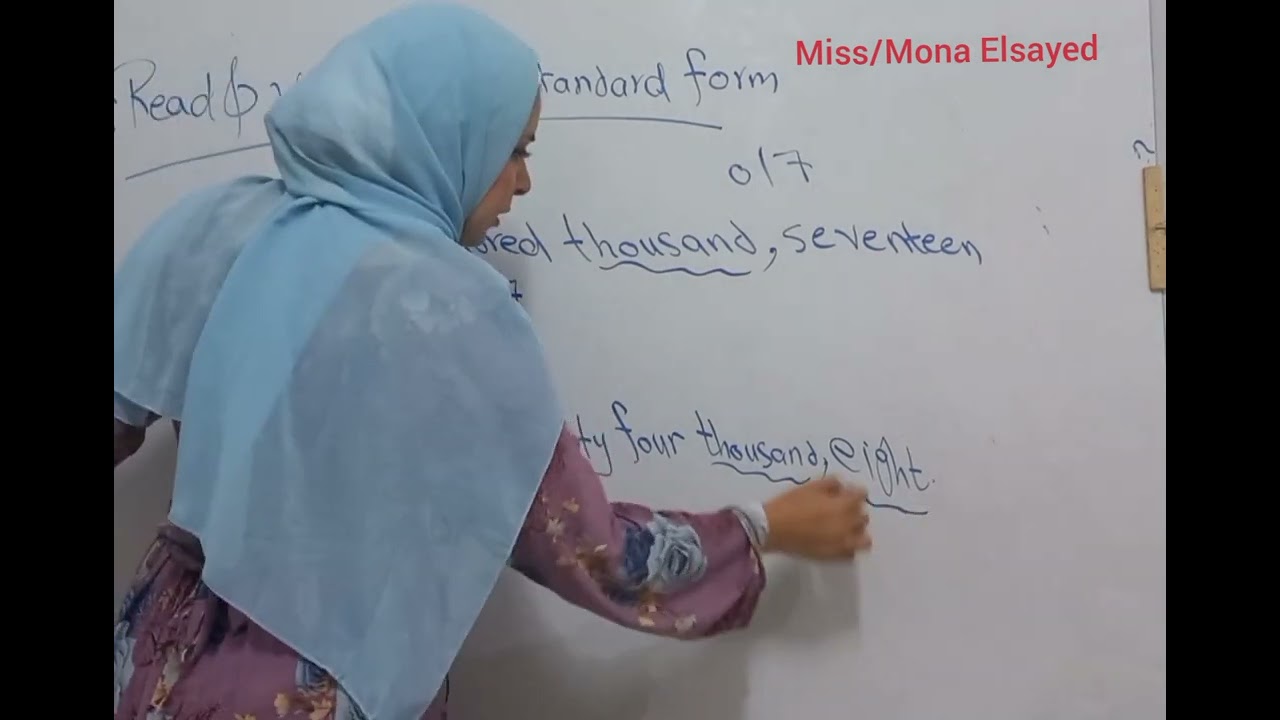 Miss/Mona Elsayed
Read & standard form
017
thousand, seventeen
7
four thousand, eight.